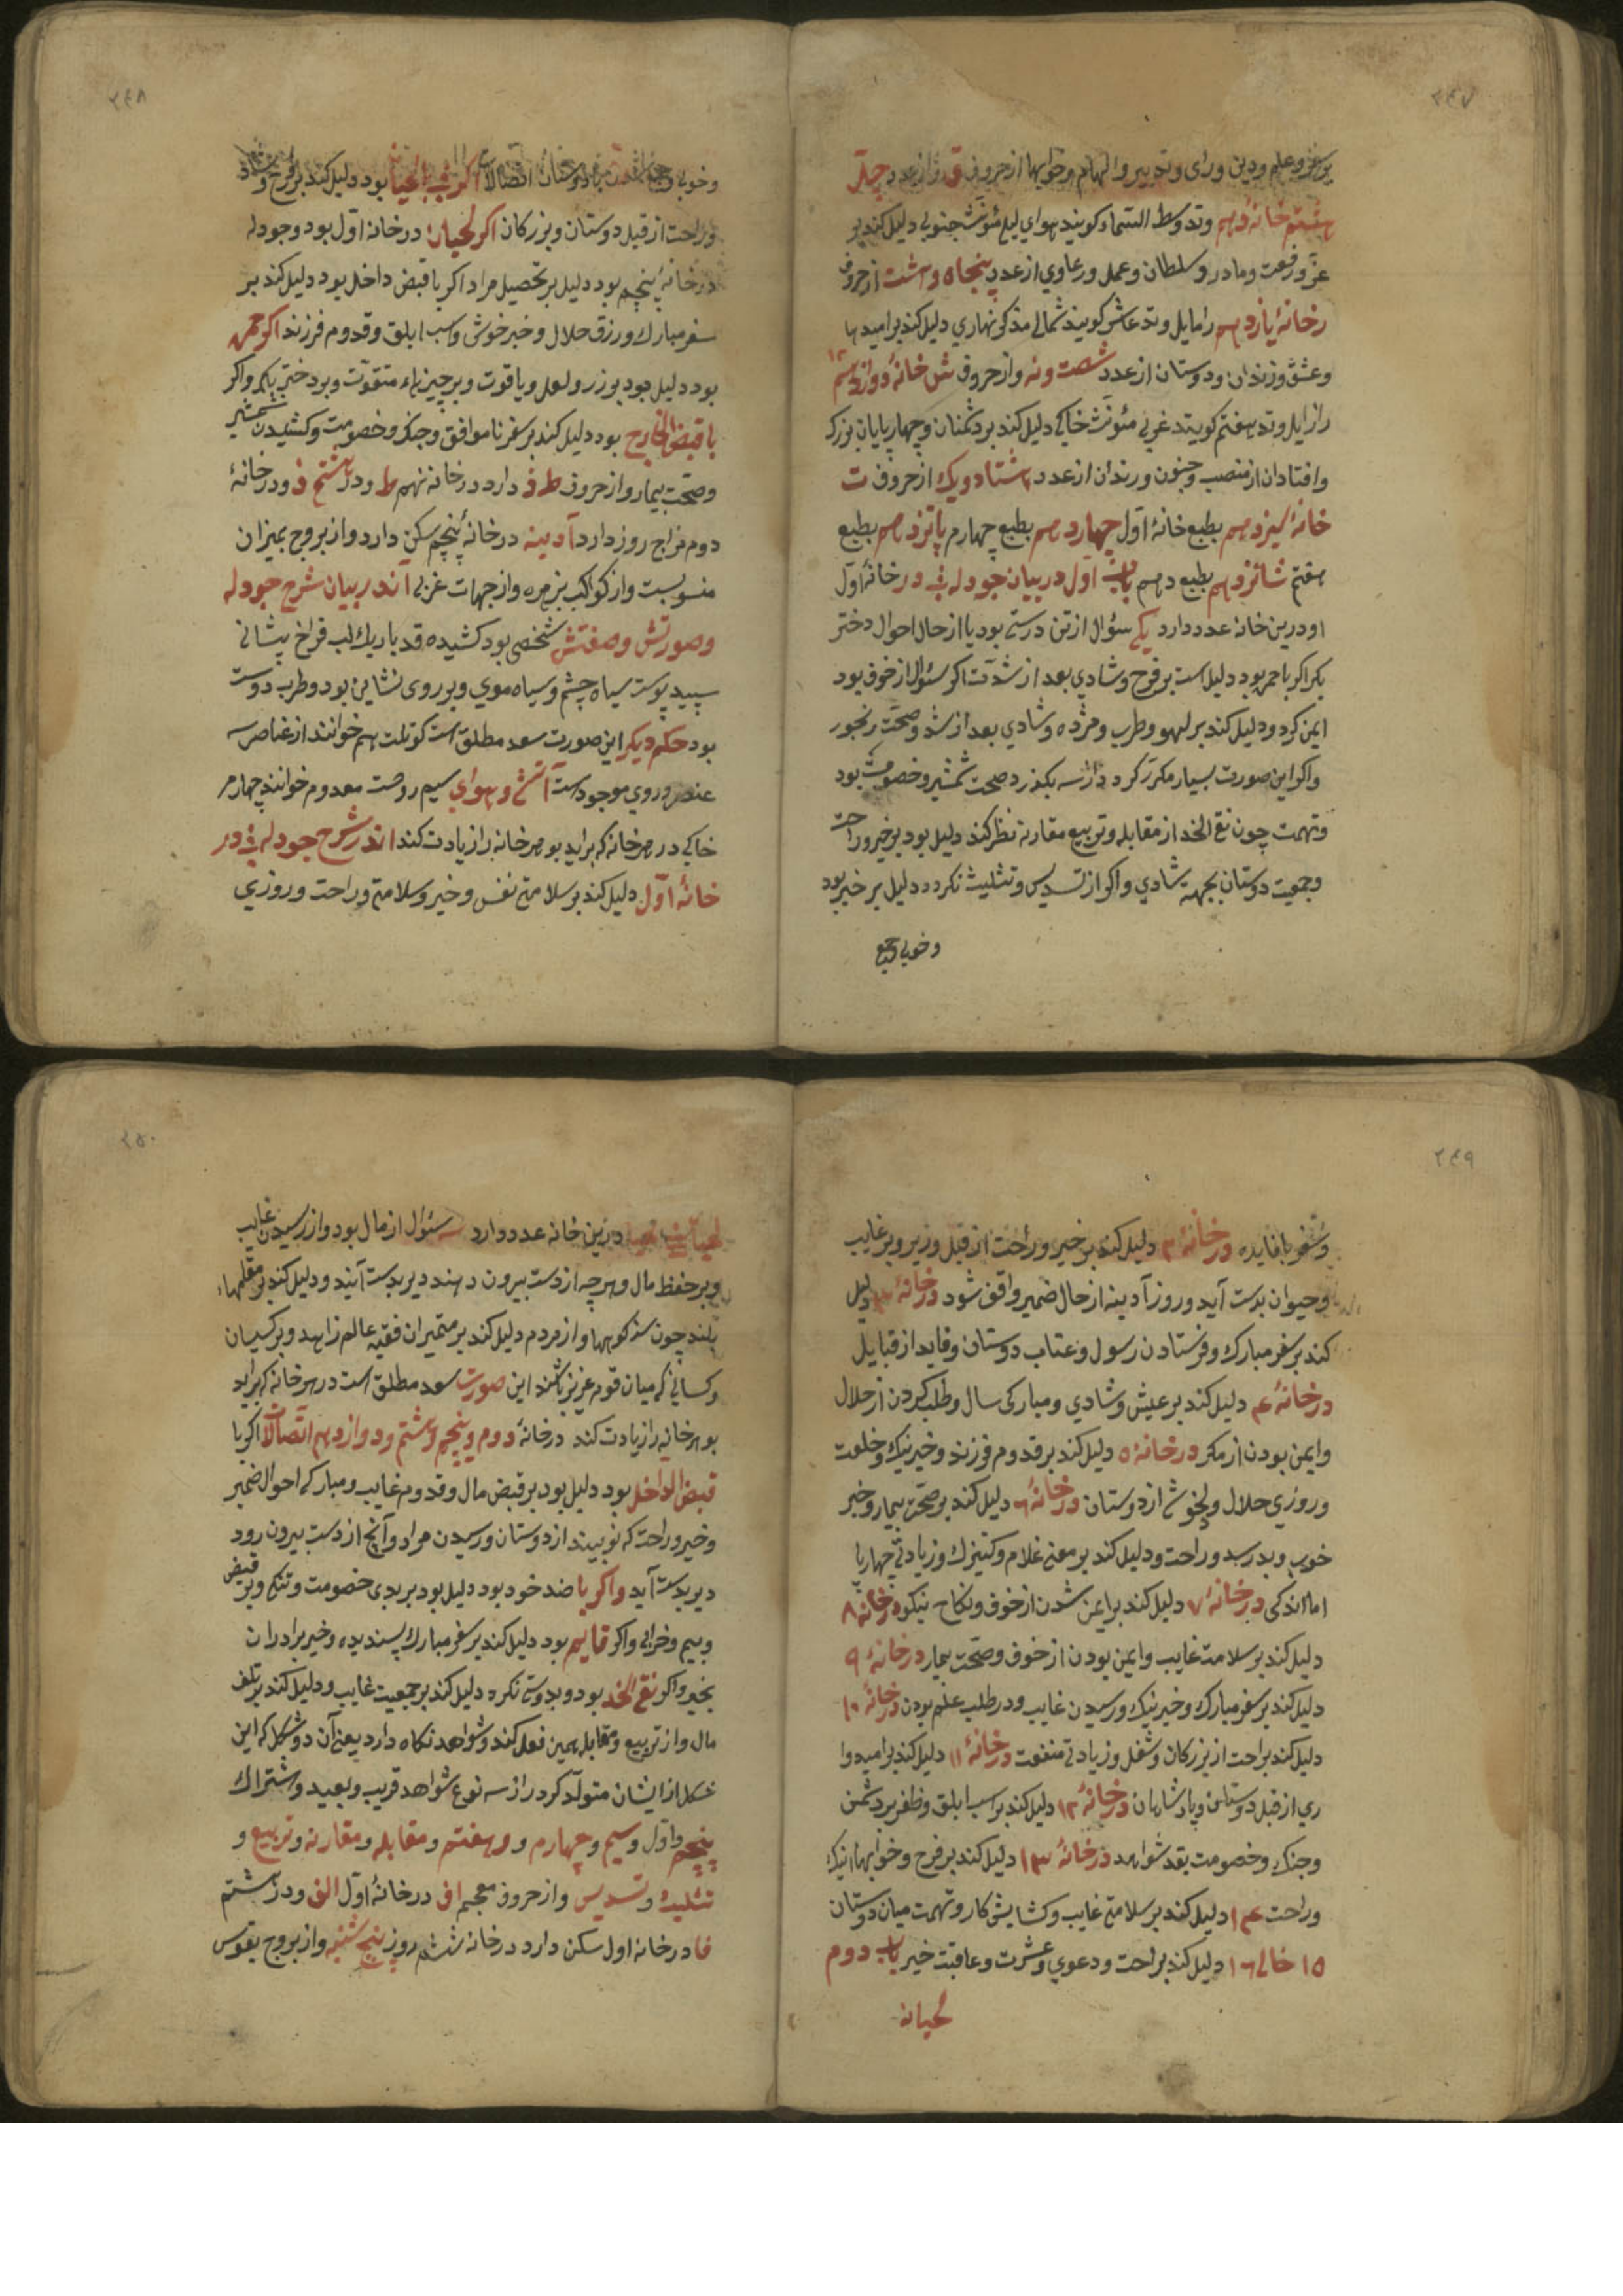 ۲۴۷
بر سفر و علم و دین و رای و تدبیر و الهام و خوابها از حروف ق و از عدد چهل
هشتم خانهٔ دهم وتد وسط السماء کویند هوای لیلی مؤنث جنوبی دلیل کند بر
عز و رفعت و مادر و سلطان و عمل و رعاوی از عدد پنجاه و شت از حروف
ر خانهٔ یازدهم را مایل وتد عاشر کویند شمالی مذکر نهاری دلیل کند بر امیدها
و عشق وزندان و دوستان از عدد شصت و نه و از حروف ش خانهٔ دوازدهم ۱۲
را زایل وتد هفتم کویند غربی مؤنث خاکی دلیل کند بر دشمنان و چهارپایان بزرک
و افتادن از منصب و جنون و رندان از عدد هشتاد و یک از حروف ت
خانهٔ سیزدهم بطبع خانهٔ اول چهاردهم بطبع چهارم پانزدهم بطبع
هفتم شانزدهم بطبع دهم باب اول در بیان جودله در خانهٔ اول
او درین خانه عدد دارد یکی سؤال از تن درستی بود یا از حال احوال دختر
بکر اکر با حمره بود دلیل است بر فرح و شادی بعد از شدت اکر سؤال از خوف بود
ایمن کردد و دلیل کند بر لهو و طرب و مژده و شادی بعد از شد و صحت رنجور
و اکر این صورت بسیار مکرر کردد از سه بکذرد صحت شمشیر و خصومت بود
و تهمت چون نقی الخد از مقابله و تربیع مقارنه نظر کند دلیل بود بر خیر و راحت
و جمعیت دوستان بجهة شادی و اکر از تسدیس و تثلیث نکرد دلیل بر خیر بود
و خوبی جمع
۲۴۸
و خوبی اتصالات اکر لحیان بود دلیل کند بر فرح و
و راحت از قبل دوستان و بزرکان اکر لحیان در خانهٔ اول بود و جودله
در خانهٔ پنجم بود دلیل بر تحصیل مراد اکر با قبض داخل بود دلیل کند بر
سفر مبارک و رزق حلال و خبر خوش و اسب ابلق و قدوم فرزند اکر حمره
بود دلیل بود بر زر و لعل و یاقوت و بر چیزهاء متقوت و بر دختر بکر و اکر
با قبض الخارج بود دلیل کند بر سفر ناموافق و جنک و خصومت و کشیدن شمشیر
و صحت بیمار و از حروف ط ذ دارد در خانه نهم ط و در هشتم ذ و در خانهٔ
دوم مزاج روز دارد آدینه در خانهٔ پنجم سکن دارد و از بروج بمیزان
منسوبست و از کواکب بزهره و از جهات غربی اندر بیان شرح جودله
و صورتش و صفتش شخصی بود کشیده قد باریک لب فراخ پیشانی
سپید پوست سیاه چشم و سیاه موی و بر روی نشانی بود و طرب دوست
بود حکم دیکر این صورت سعد مطلق است کوتلت هم خوانند از عناصر سه
عنصر در وی موجودست آتشی و هوای سیم روحست معدوم خوانند چهارم
خاکی در هر خانه که براید بو هر خانه را زیادت کند اندر شرح جودله در
خانهٔ اول دلیل کند بر سلامتی نفس و خیر و سلامتی و راحت و روزی
۲۴۹
و سفر با فایده در خانهٔ ۲ دلیل کند بر خیر و راحت از قبل وزیر و بر غایب
و حیوان بدست آید و روز آدینه از حال ضمیر واقف شود در خانهٔ ۳ دلیل
کند بر سفر مبارک و فرستادن رسول و عتاب دوستان و فاید از قبایل
در خانهٔ ۴ دلیل کند بر عیش و شادی و مبارکی سال و طلب کردن از حلال
و ایمن بودن از مکر در خانهٔ ۵ دلیل کند بر قدوم فرزند و خبر نیک و خلعت
و روزی حلال و لخوشی از دوستان در خانهٔ ۶ دلیل کند بر صحت بیمار و خبر
خوب و بد رسد و راحت و دلیل کند بر معنی غلام و کنیزک و زیادتی چهارپا
اما اندکی در خانهٔ ۷ دلیل کند بر ایمن شدن از خوف و نکاح نیکو در خانهٔ ۸
دلیل کند بر سلامت غایب و ایمن بودن از خوف و صحت بیمار در خانهٔ ۹
دلیل کند بر سفر مبارک و خبر نیک و رسیدن غایب و در طلب علم بودن در خانهٔ ۱۰
دلیل کند براحت از بزرکان و شغل و زیادتی منفعت در خانهٔ ۱۱ دلیل کند بر امیدوا
ری از قبل دوستان و پادشاهان در خانهٔ ۱۲ دلیل کند بر اسب ابلق و ظفر بر دشمن
و جنک و خصومت بقد شواهد در خانهٔ ۱۳ دلیل کند بر فرح و خوابهاء نیک
و راحت ۱۴ دلیل کند بر سلامتی غایب و کشایش کار و تهمت میان دوستان
۱۵ خالی ۱۶ دلیل کند بر راحت و دعوی و عشرت و عاقبت خیر باب دوم
لحیانه
۲۵۰
درین خانه عدد دارد سه سؤال از مال بود و از رسیدن غایب
و بر حفظ مال و هر چه از دست بیرون دهند دیر بدست آیند و دلیل کند بر مقامهاء
بلند چون سر کوهها و از مردم دلیل کند بر متمیزان فقیه عالم زاهد و بر کسیان
و کسانی که میان قوم عزیز باشند این صورت سعد مطلق است در هر خانه که براید
بو هر خانه را زیادت کند در خانهٔ دوم و پنجم و هشتم و دوازدهم اتصالات اکر با
قبض الداخل بود دلیل بود بر قبض مال و قدوم غایب و مبارکی احوال ضمیر
و خیر و راحت که نو بیند از دوستان و رسیدن مراد و آنچ از دست بیرون رود
دیر بدست آید و اکر با ضد خود بود دلیل بود بر بدی خصومت و تنکی و بر قبض
و بیم و خرابی و اکر قایم بود دلیل کند بر سفر مبارک پسندیده و خبر برادران
بخیر و اکر نقی الخد بود و بدوستی نکرد دلیل کند بر جمعیت غایب و دلیل کند بر تلف
مال و از تربیع و مقابله همین فعل کند و شواهد نکاه دارد یعنی آن دو شکل که این
شکل از ایشان متولد کردد از سه نوع شواهد قریب و بعید و اشتراک
پنجم و اول و سیم و چهارم و و هفتم و مقابله و مقارنه و تربیع و
تثلیث و تسدیس و از حروف معجم اف در خانهٔ اول الف و در هشتم
فا در خانه اول سکن دارد در خانه ششم روز پنج شنبه و از بروج بقوس